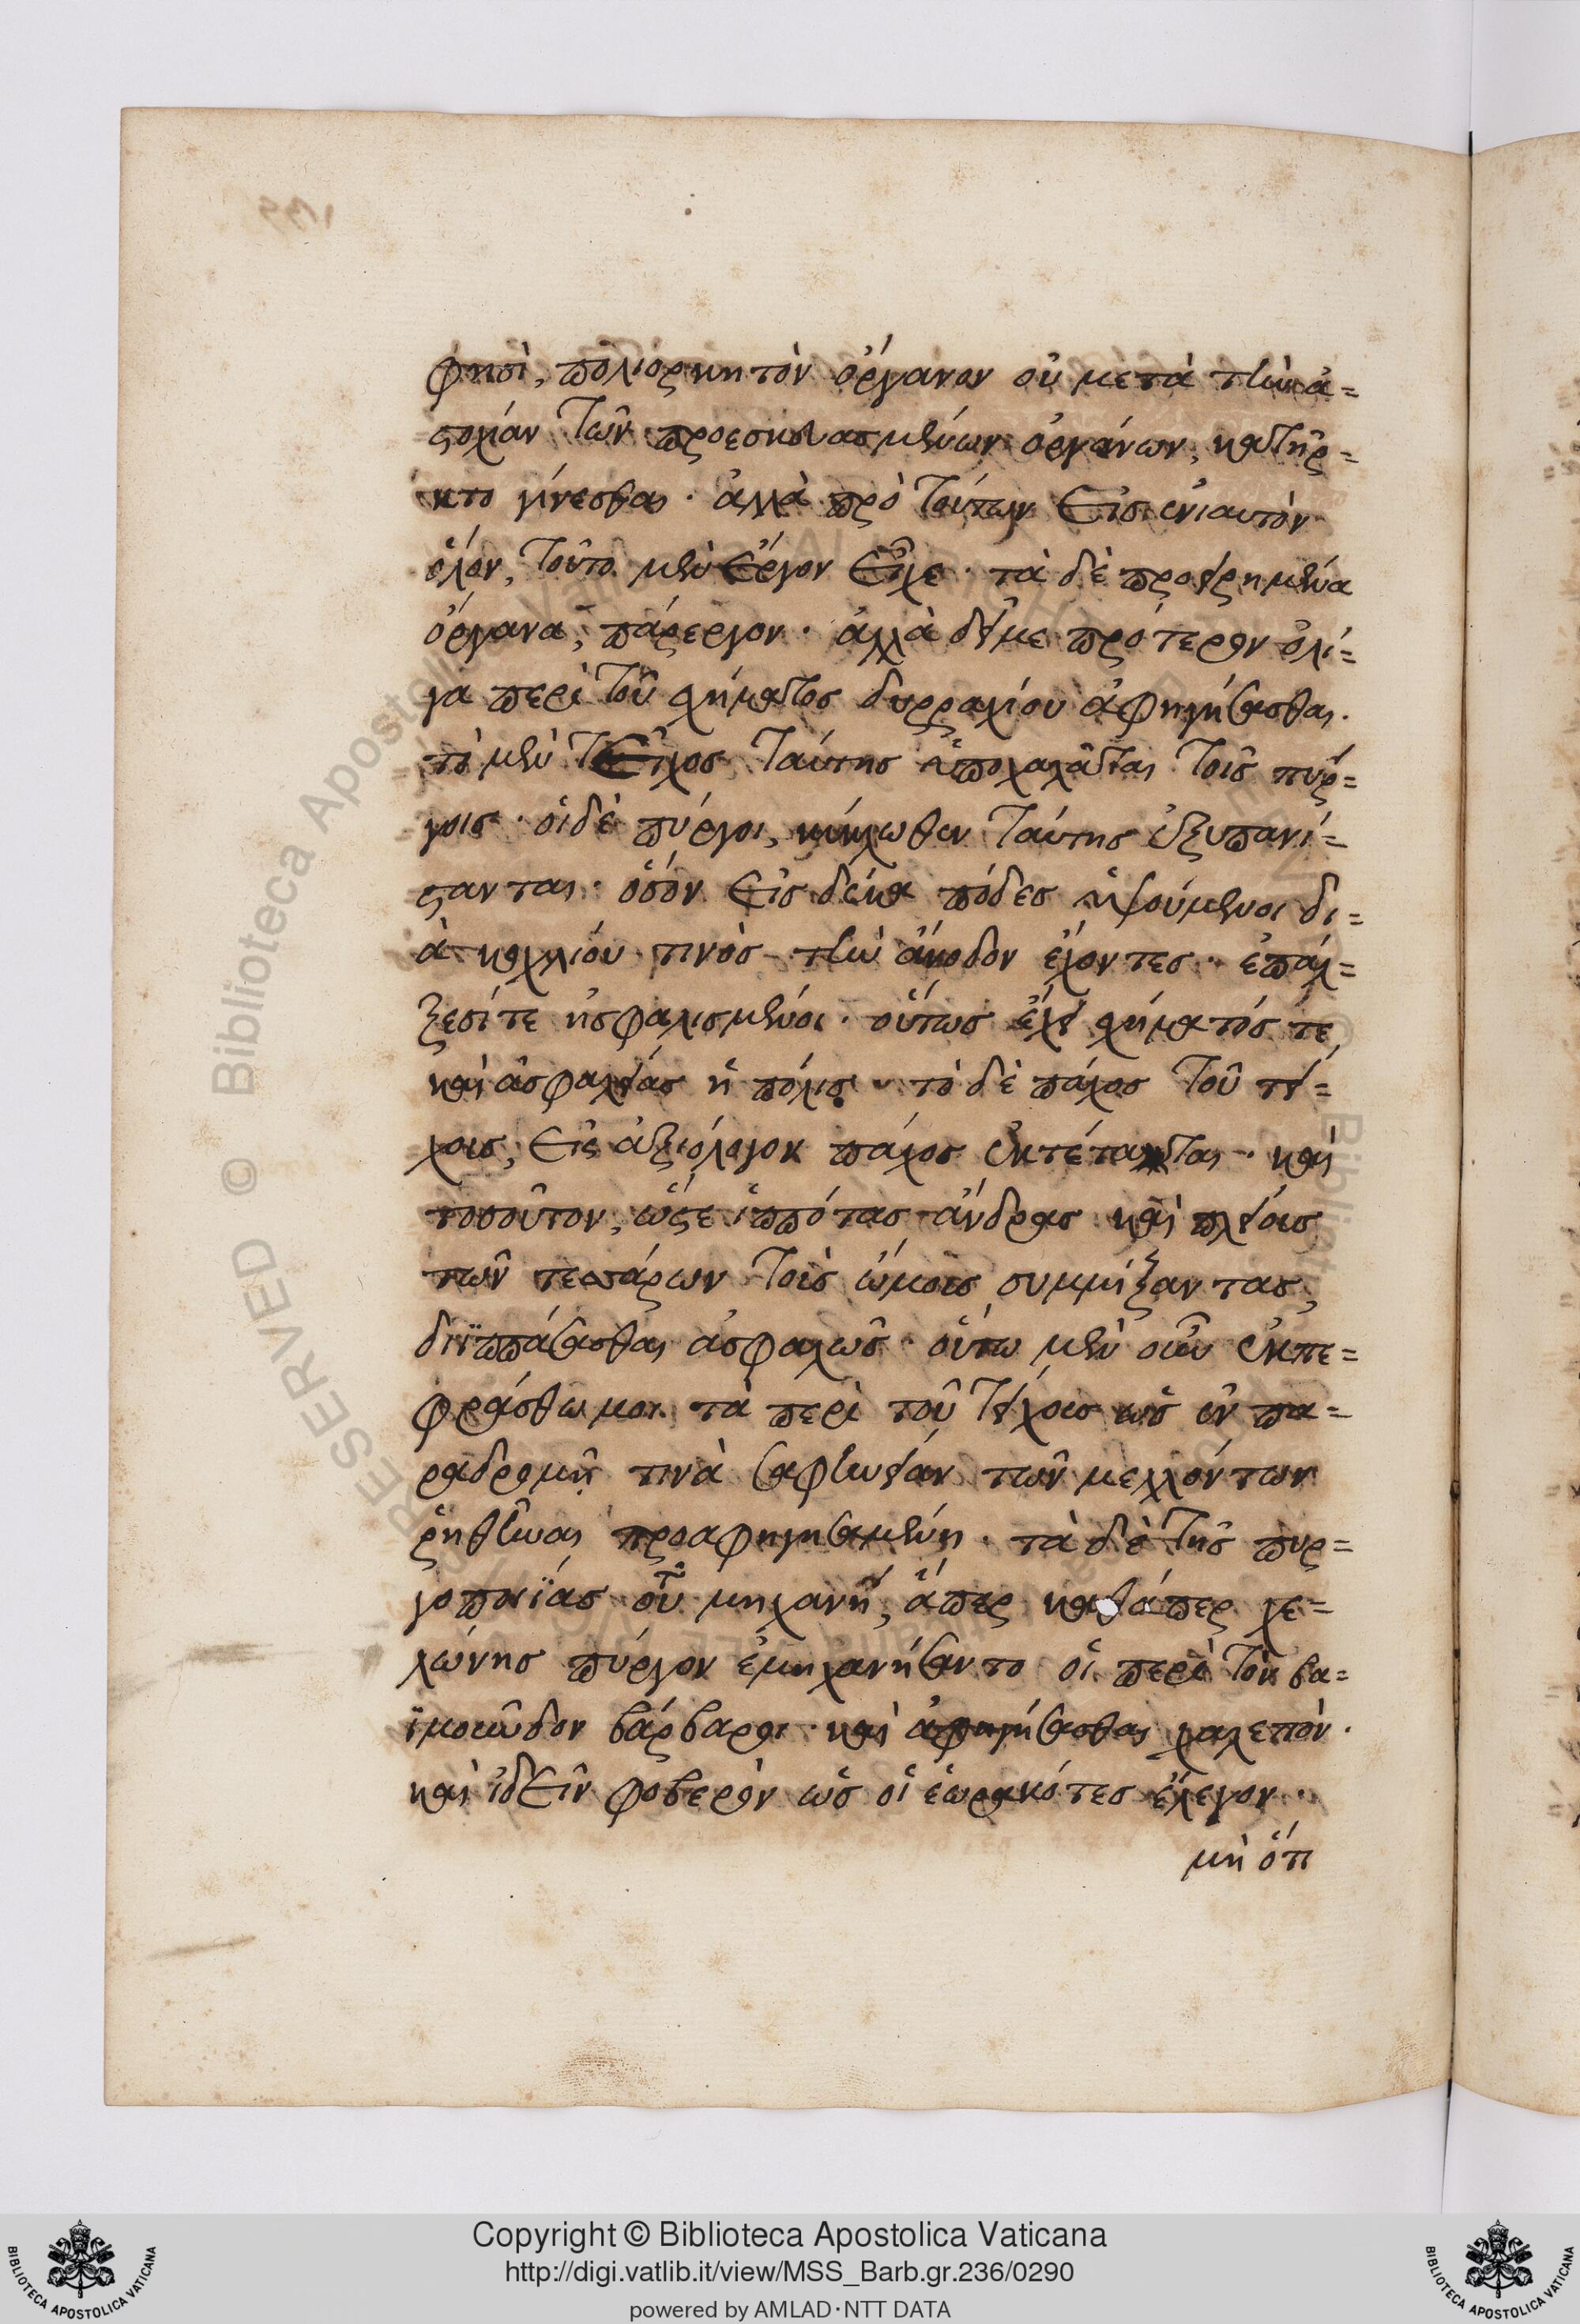 φησὶ, πολιορκητὸν ὄργανον οὐ μετὰ τὴν ἀ=
στοχίαν τῶν προεσκευασμένων ὀργάνων, κατῆρ=
κτο γίνεσθαι· ἀλλὰ πρὸ τούτων εἰς ἐνιαυτὸν
ὅλον, τοῦτο μὲν ἔργον εἶχε· τὰ δὲ προειρημένα
ὄργανα, πάρεργον· ἀλλὰ δεῖ με πρότερον ὀλί=
γα περὶ τοῦ σχήματος δυρραχίου ἀφηγήσασθαι.
τὸ μὲν τεῖχος ταύτης ὑποχαλᾶται τοῖς πύρ=
γοις· οἱ δὲ πύργοι, κύκλωθεν ταύτης ἐξυπανί=
στανται· ὅσον εἰς δέκα πόδες ὑψούμενοι δι=
ὰ κοχλιόυ τινὸς τὴν ἄνοδον ἔχοντες· ἐπάλ=
ξεσί τε ἠσφαλισμένοι· οὕτως ἔχει σχήματός τε
καὶ ἀσφαλείας ἡ πόλις· τὸ δὲ πάχος τοῦ τεί=
χους, εἰς ἀξιόλογον πάχος ἐκτέταται· καὶ
τοσοῦτον, ὥστε ἱππότας ἄνδρας καὶ πλείους
τῶν τεσσάρων τοῖς ὤμοις συμμίξαντας,
διϊππάσασθαι ἀσφαλῶς· οὕτω μὲν οὖν ἐκπε=
φράσθω μοι τὰ περὶ τοῦ τείχους ὡς ἐν πα=
ραδρομῇ τινὰ σαφήνειάν τῶν μελλόντων
ῥηθῆναι προαφηγησαμένη· τὰ δὲ τῆς πυρ=
γοποιΐας οὖν μηχανῆ, ἅπερ καθάπερ χε=
λώνης πύργον ἐμηχανήσαντο οἱ περὶ τὸν βα=
ϊμοῦνδον βάρβαροι· καὶ ἀφηγήσασθαι χαλεπὸν·
καὶ ἰδεῖν φοβερὸν ὡς οἱ ἑωρακότες ἔλεγον·
μὴ ὅτι
Copyright © Biblioteca Apostolica Vaticana
http://digi.vatlib.it/view/MSS_Barb.gr.236/0290
powered by AMLAD·NTT DATA